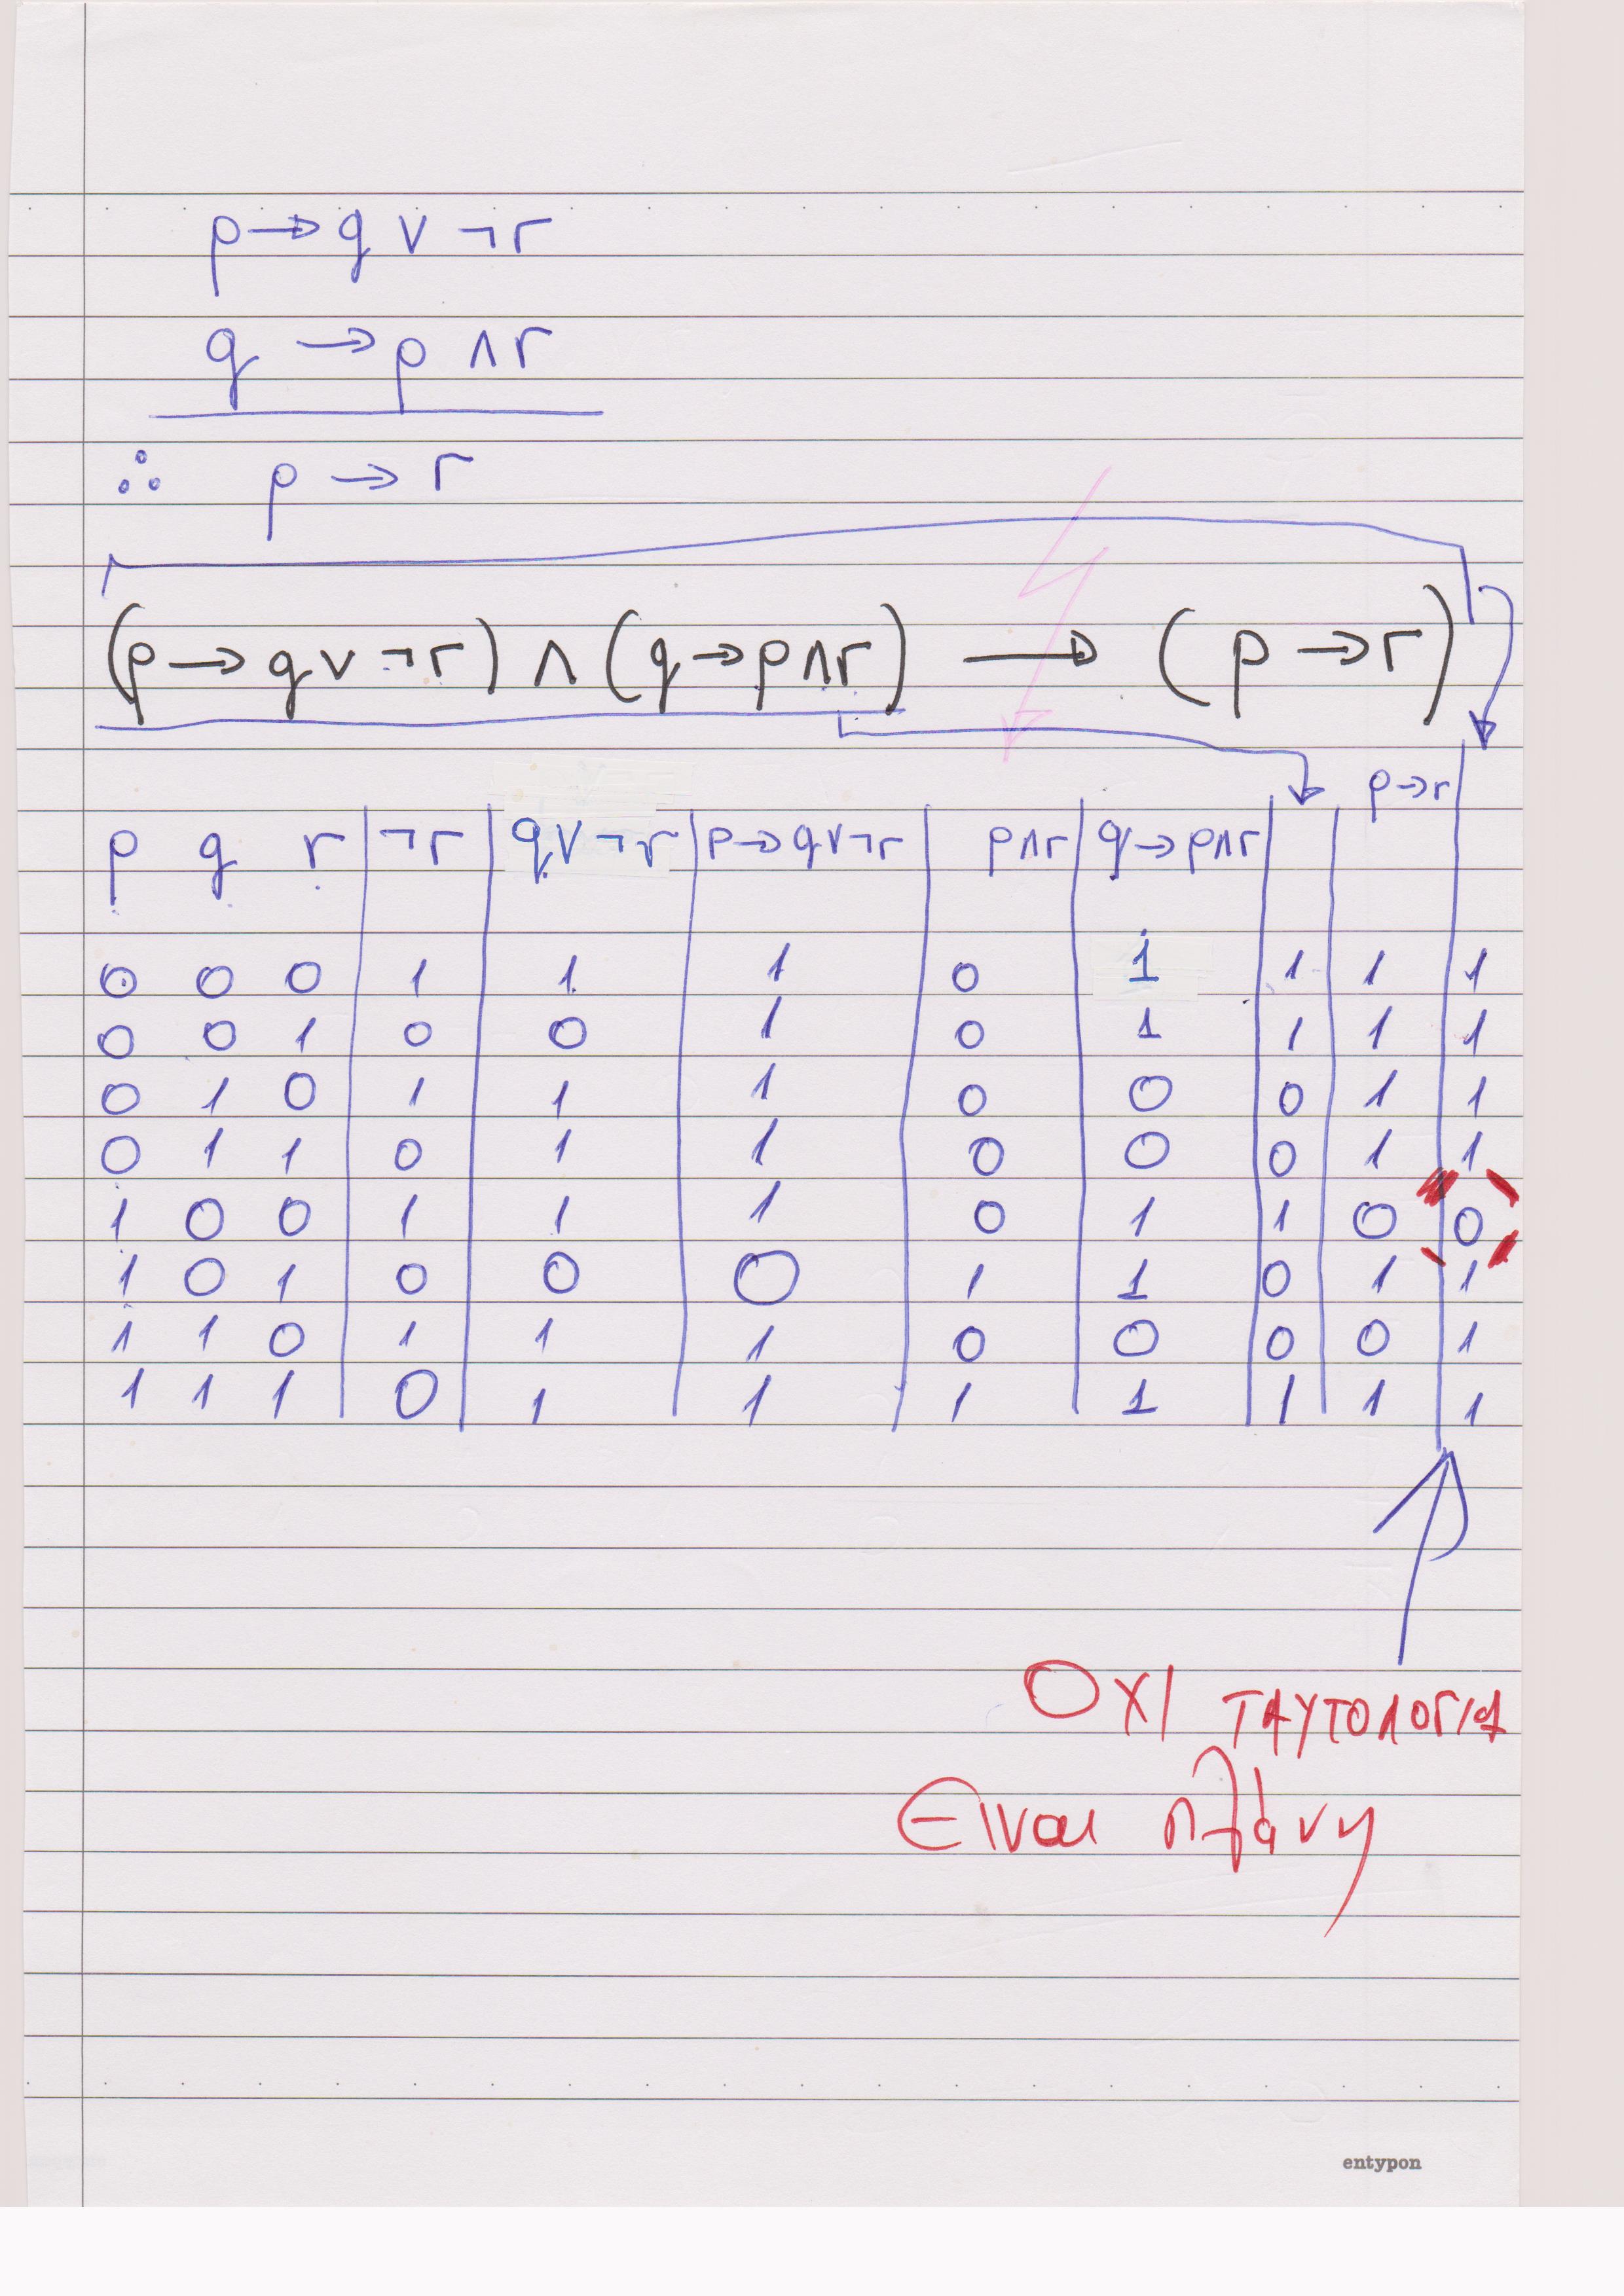 p → q ∨ ¬r
q → p ∧ r
∴ p → r
(p → q ∨ ¬r) ∧ (q → p ∧ r) → (p → r)
p q r ¬r q ∨ ¬r p → q ∨ ¬r p ∧ r q → p ∧ r p → r
0 0 0 1 1 1 0 1 1 1 1
0 0 1 0 0 1 0 1 1 1 1
0 1 0 1 1 1 0 0 0 1 1
0 1 1 0 1 1 0 0 0 1 1
1 0 0 1 1 1 0 1 1 0 0
1 0 1 0 0 0 1 1 0 1 1
1 1 0 1 1 1 0 0 0 0 1
1 1 1 0 1 1 1 1 1 1 1
ΟΧΙ ΤΑΥΤΟΛΟΓΙΑ
Είναι πλάνη
entypon